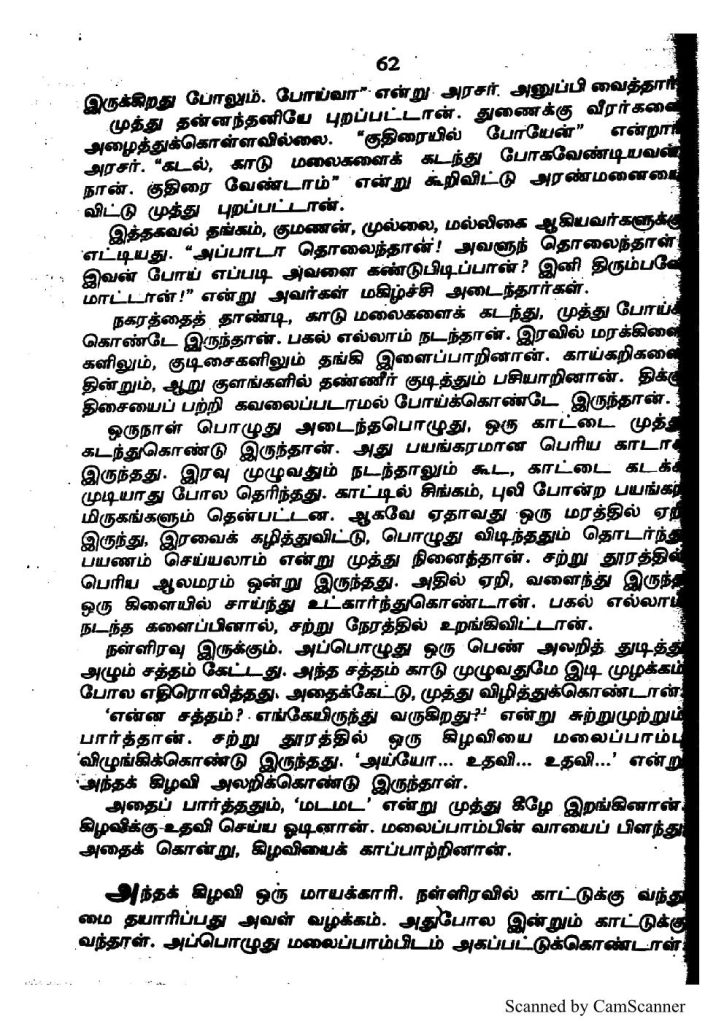 62
இருக்கிறது போலும். போய்வா" என்று அரசர் அனுப்பி வைத்தார்
முத்து தன்னந்தனியே புறப்பட்டான். துணைக்கு வீரர்களை
அழைத்துக்கொள்ளவில்லை. "குதிரையில் போயேன்" என்றார்
அரசர். "கடல், காடு மலைகளைக் கடந்து போகவேண்டியவன்
நான். குதிரை வேண்டாம்" என்று கூறிவிட்டு அரண்மனையை
விட்டு முத்து புறப்பட்டான்.
இத்தகவல் தங்கம், குமணன், முல்லை, மல்லிகை ஆகியவர்களுக்கு
எட்டியது. "அப்பாடா தொலைந்தான்! அவளுந் தொலைந்தாள்
இவன் போய் எப்படி அவளை கண்டுபிடிப்பான்? இனி திரும்பவே
மாட்டான்!" என்று அவர்கள் மகிழ்ச்சி அடைந்தார்கள்.
நகரத்தைத் தாண்டி, காடு மலைகளைக் கடந்து, முத்து போய்க்
கொண்டே இருந்தான். பகல் எல்லாம் நடந்தான். இரவில் மரக்கிளை
களிலும், குடிசைகளிலும் தங்கி இளைப்பாறினான். காய்கறிகளை
தின்றும், ஆறு குளங்களில் தண்ணீர் குடித்தும் பசியாறினான். திக்கு
திசையைப் பற்றி கவலைப்படாமல் போய்க்கொண்டே இருந்தான்.
ஒருநாள் பொழுது அடைந்தபொழுது, ஒரு காட்டை முத்து
கடந்துகொண்டு இருந்தான். அது பயங்கரமான பெரிய காடாக
இருந்தது. இரவு முழுவதும் நடந்தாலும் கூட, காட்டை கடக்க
முடியாது போல தெரிந்தது. காட்டில் சிங்கம், புலி போன்ற பயங்கர
மிருகங்களும் தென்பட்டன. ஆகவே ஏதாவது ஒரு மரத்தில் ஏறி
இருந்து, இரவைக் கழித்துவிட்டு, பொழுது விடிந்ததும் தொடர்ந்து
பயணம் செய்யலாம் என்று முத்து நினைத்தான். சற்று தூரத்தில்
பெரிய ஆலமரம் ஒன்று இருந்தது. அதில் ஏறி, வளைந்து இருந்த
ஒரு கிளையில் சாய்ந்து உட்கார்ந்துகொண்டான். பகல் எல்லாம்
நடந்த களைப்பினால், சற்று நேரத்தில் உறங்கிவிட்டான்.
நள்ளிரவு இருக்கும். அப்பொழுது ஒரு பெண் அலறித் துடித்து
அழும் சத்தம் கேட்டது. அந்த சத்தம் காடு முழுவதுமே இடி முழக்கம்
போல எதிரொலித்தது. அதைக்கேட்டு, முத்து விழித்துக்கொண்டான்.
'என்ன சத்தம்? எங்கேயிருந்து வருகிறது?' என்று சுற்றுமுற்றும்
பார்த்தான். சற்று தூரத்தில் ஒரு கிழவியை மலைப்பாம்பு
விழுங்கிக்கொண்டு இருந்தது. 'அய்யோ... உதவி... உதவி...' என்று
அந்தக் கிழவி அலறிக்கொண்டு இருந்தாள்.
அதைப் பார்த்ததும், 'மடமட' என்று முத்து கீழே இறங்கினான்.
கிழவிக்கு உதவி செய்ய ஓடினான். மலைப்பாம்பின் வாயைப் பிளந்து
அதைக் கொன்று, கிழவியைக் காப்பாற்றினான்.
அந்தக் கிழவி ஒரு மாயக்காரி. நள்ளிரவில் காட்டுக்கு வந்து
மை தயாரிப்பது அவள் வழக்கம். அதுபோல இன்றும் காட்டுக்கு
வந்தாள். அப்பொழுது மலைப்பாம்பிடம் அகப்பட்டுக்கொண்டாள்.
Scanned by CamScanner